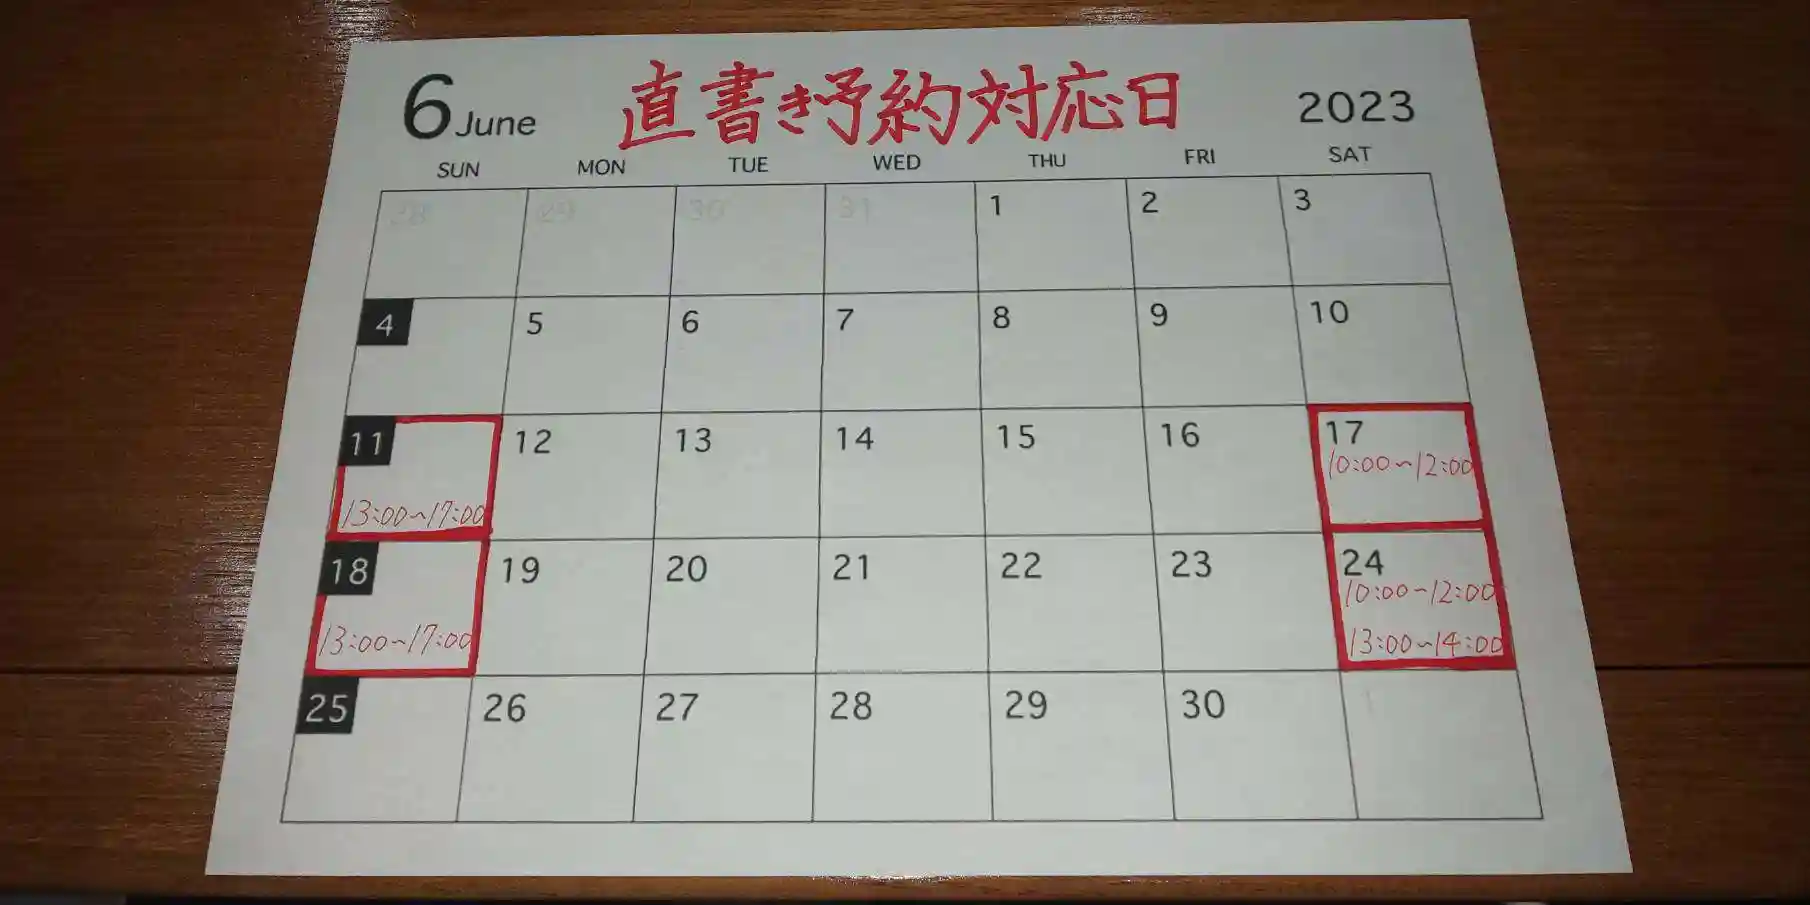 6 June 直書き予約対応日 2023
SUN MON TUE WED THU FRI SAT
28 29 30 31 1 2 3
4 5 6 7 8 9 10
11 12 13 14 15 16 17
10:00~12:00
13:00~17:00
18 19 20 21 22 23 24
10:00~12:00
13:00~17:00 13:00~14:00
25 26 27 28 29 30 1